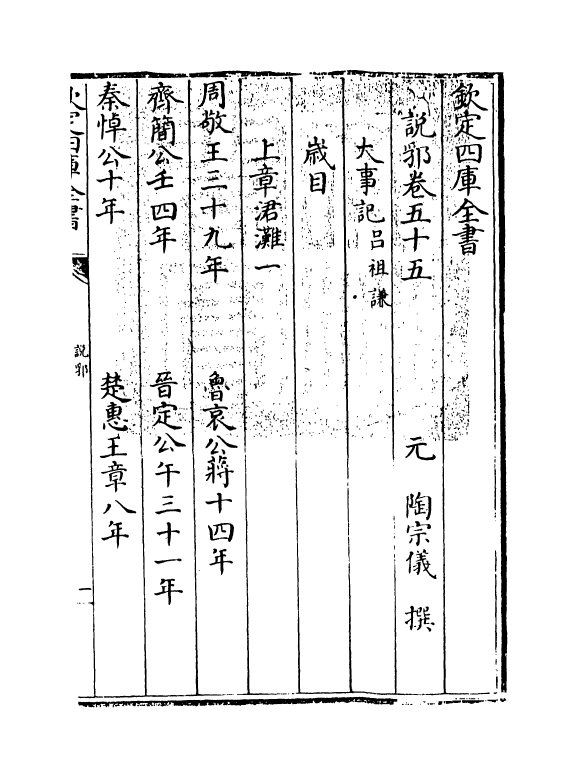 欽定四庫全書
說郛卷五十五　元　陶宗儀　撰
大事記呂祖謙
歲目
上章涒灘一
周敬王三十九年　魯哀公蔣十四年
齊簡公壬四年　晉定公午三十一年
秦悼公十年　楚惠王章八年
欽定四庫全書
說郛
一